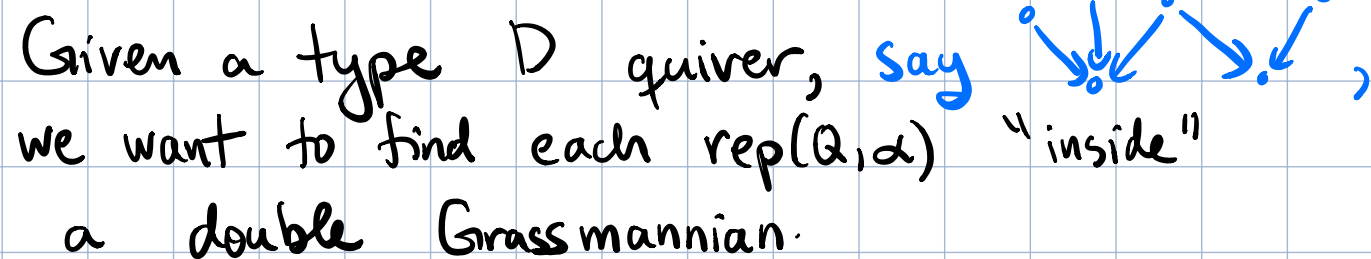 Given a type D quiver, say ,
we want to find each rep(Q,α) "inside"
a double Grassmannian.